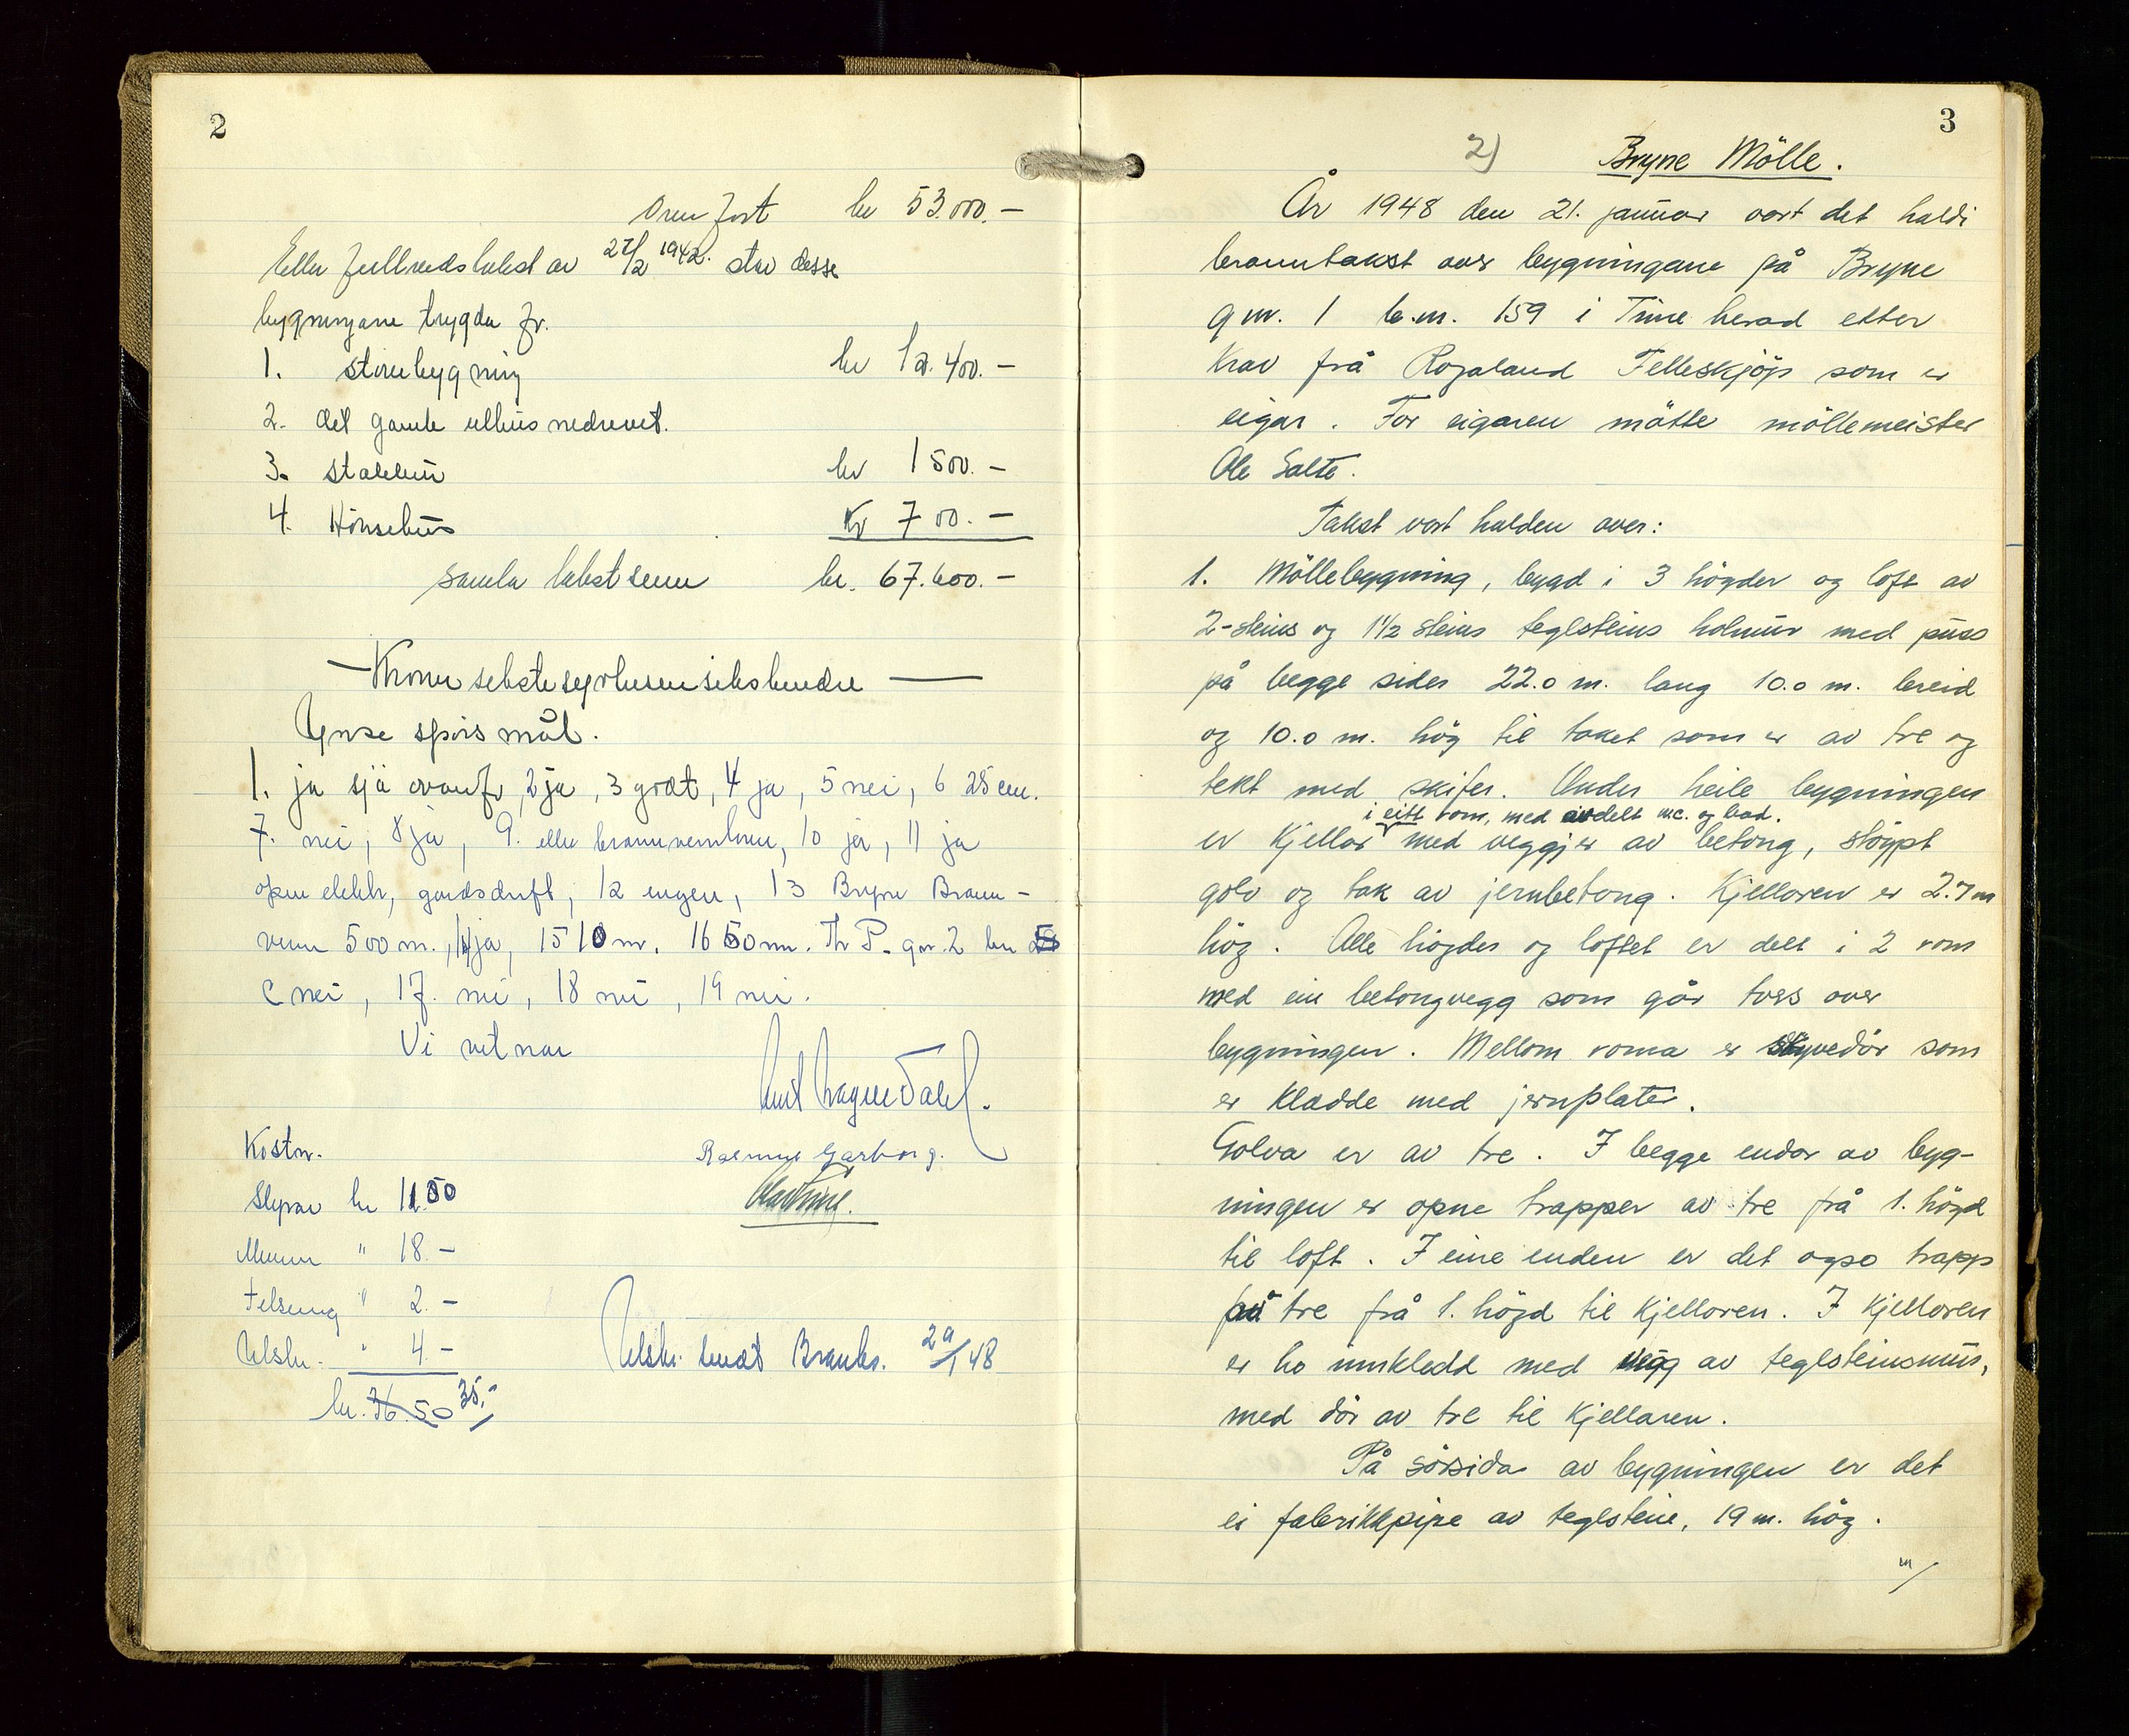 2
Overført kr 53.000.-
Etter fullverdstakst av 27/2 1942. står desse
bygningane trygda fr.
1. stovebygning kr 12.400.-
2. det gamle uthus nedrevet.
3. stabbur kr 1500.-
4. Hönsehus Kr 700.-
samla takstsum kr. 67.600.-
- Kroner sekstisyvtusensekshundre -
Ymse spörsmål.
1. ja sjå ovanfr, 2 ja, 3 godt, 4 ja, 5 nei, 6 25 cm.
7. nei, 8 ja, 9. elter brannvernlovn, 10 ja, 11 ja
open elektr, gardsdrift, 12 ingen, 13 Bryne Brann-
vern 500 m., 14 ja, 15 10 m. 16 50 m. Th P. gnr. 2 bnr
c nei, 17. nei, 18 nei, 19 nei.
Vi vitnar
Rasmus Garborg.
Kostn.
Styrar kr 11.50
Menn " 18.-
Telsting " 2.-
Utskr. " 4.-
kr. 36.50 35.-
Utskr. sendt Brannks. 29/1 48
3
2) Bryne Mölle.
År 1948 den 21. januar vart det haldi
branntakst over bygningane på Bryne
gnr. 1 b.nr. 159 i Time herad etter
krav frå Rogaland Felleskjöp som er
eigar. For eigaren mötte möllemeister
Ole Salte.
Takst vart halden over:
1. Möllebygning, bygd i 3 högder og loft av
2-steins og 1½ steins teglsteins holmur med puss
på begge sider 22.0 m. lang 10.0 m. breid
og 10.0 m. hög til taket som er av tre og
tekt med skifer. Under heile bygningen
i eitt rom, med avdelt w.c. og bad.
er kjellar med veggjer av betong, stöypt
golv og tak av jernbetong. Kjelloren er 2.7 m
hög. Alle högder og loftet er delt i 2 rom
med ein betongvegg som går tvers over
bygningen. Mellom roma er skyvedör som
er kledde med jernplater.
Golva er av tre. I begge endar av byg-
ningen er opne trapper av tre frå 1. högd
til loft. I eine enden er det også trapp
av tre frå 1. högd til kjelloren. I kjelloren
er ho innkledd med vegg av teglsteinsmur,
med dör av tre til kjellaren.
På sörsida av bygningen er det
ei fabrikkpipe av teglstein, 19 m. hög.